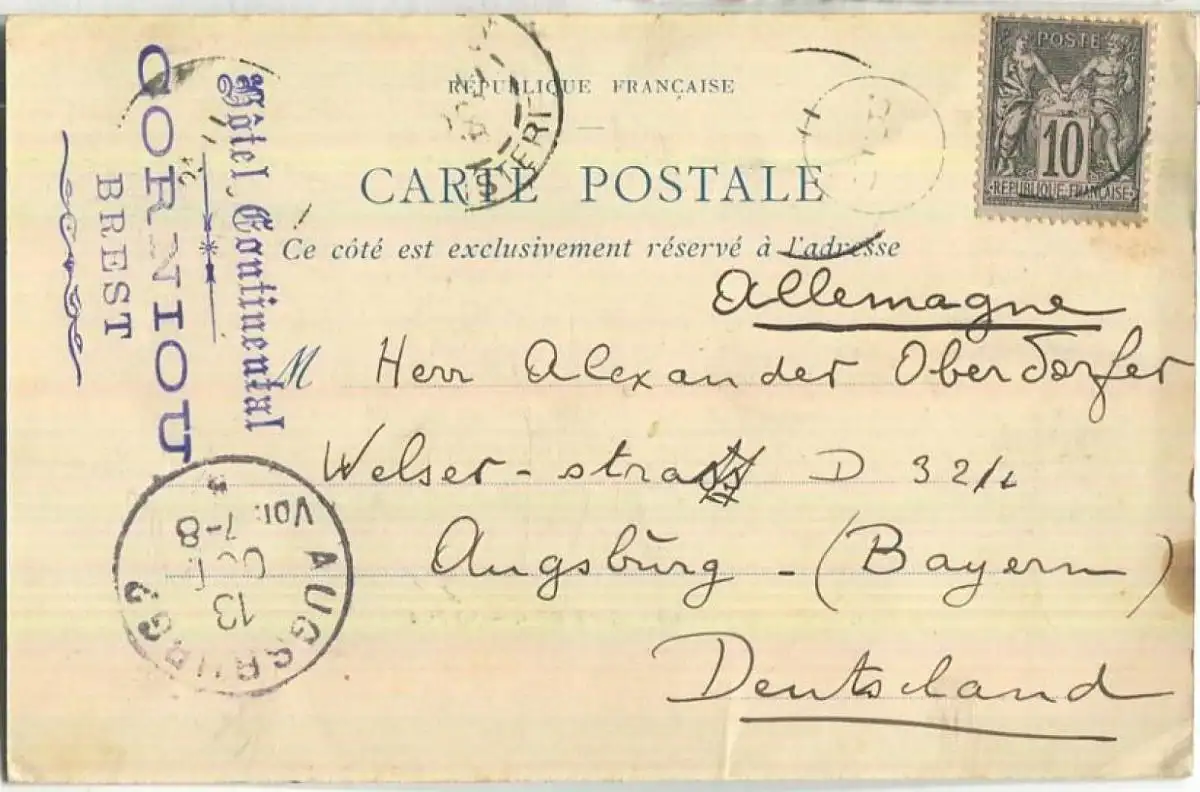 RÉPUBLIQUE FRANÇAISE
CARTE POSTALE
Ce côté est exclusivement réservé à l'adresse
POSTE
10
RÉPUBLIQUE FRANÇAISE
Allemagne
M Herr Alexander Oberdorfer
Welser-strass D 32/1
Augsburg - (Bayern)
Deutschland
Hôtel Continental
CORNIOU
BREST
AUGSBURG
Vor: 7-8
13